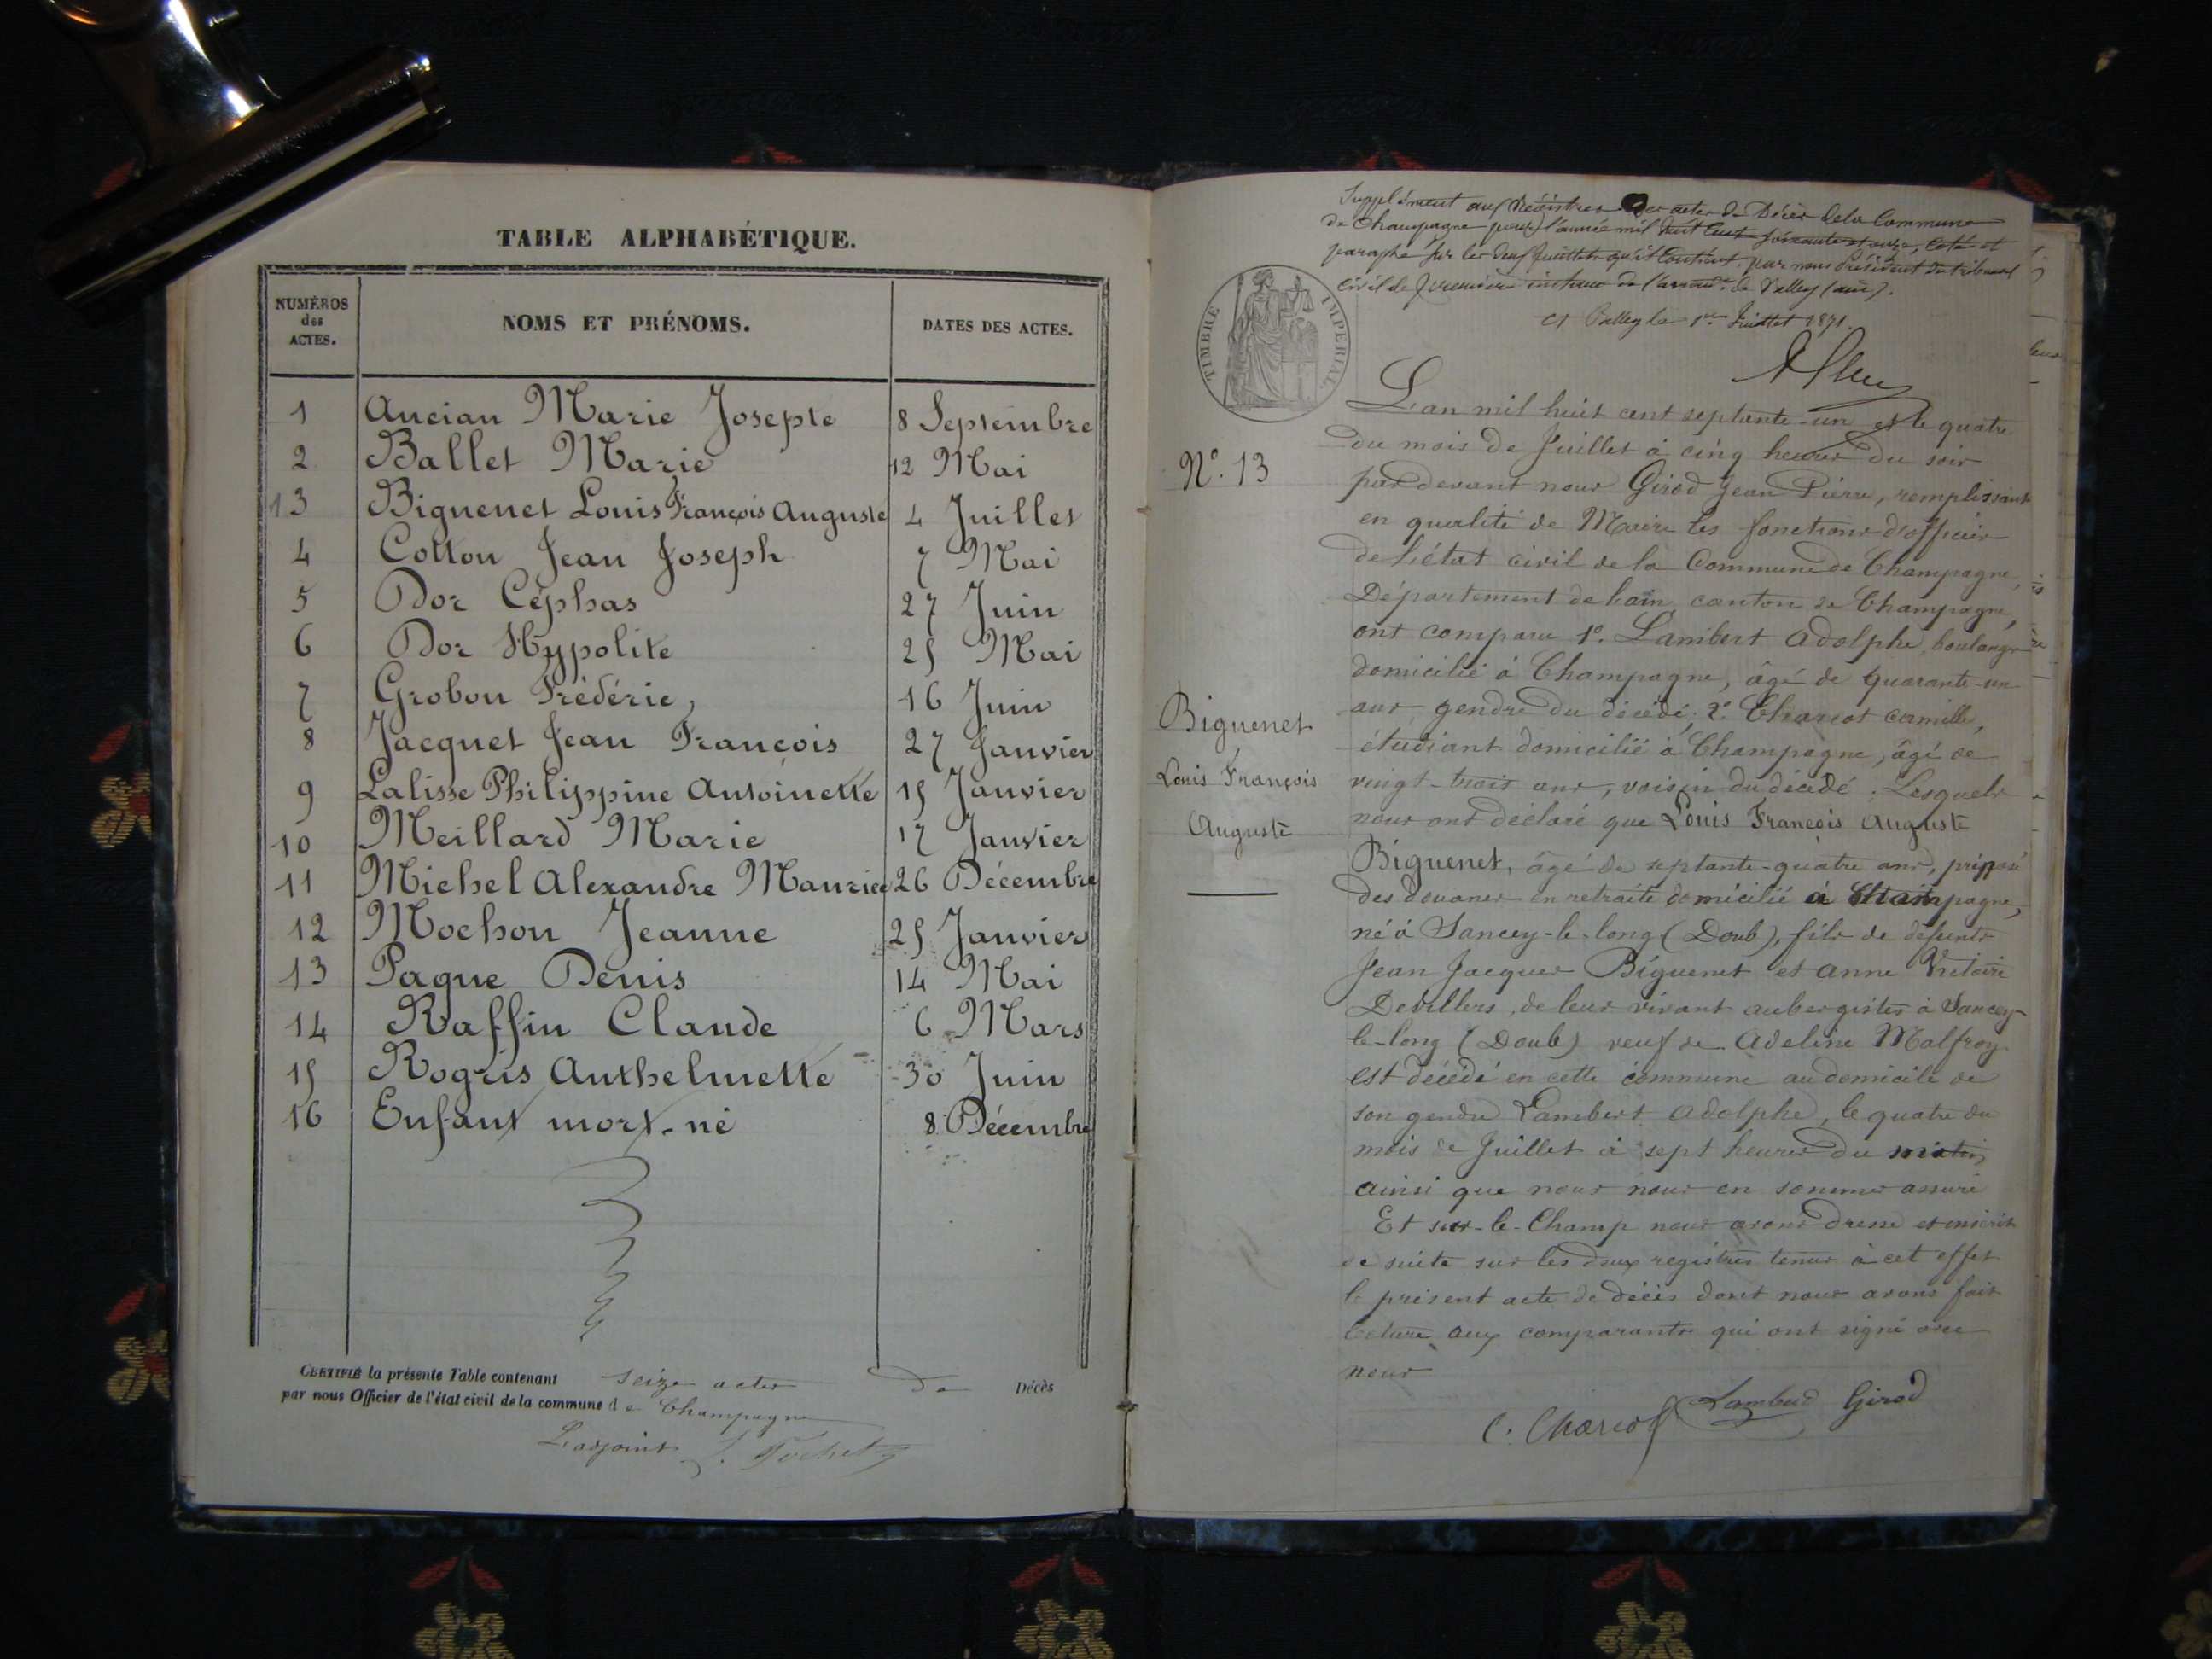 TABLE ALPHABÉTIQUE.
NUMÉROS des ACTES. NOMS ET PRÉNOMS. DATES DES ACTES.
1 Ancian Marie Josepte 8 Septembre
2 Ballet Marie 12 Mai
13 Biguenet Louis François Auguste 4 Juillet
4 Cotton Jean Joseph 7 Mai
5 Dor Céphas 27 Juin
6 Dor Hypolite 25 Mai
7 Grobon Frédéric, 16 Juin
8 Jacquet Jean François 27 Janvier
9 Lalisse Philippine Antoinette 15 Janvier
10 Meillard Marie 17 Janvier
11 Michel Alexandre Maurice 26 Décembre
12 Mochon Jeanne 25 Janvier
13 Pague Denis 14 Mai
14 Raffin Claude 6 Mars
15 Rogris Anthelmette 30 Juin
16 Enfant mort-né 8 Décembre
CERTIFIÉ la présente Table contenant seize actes de Décès
par nous Officier de l'état civil de la commune de Champagne
L'adjoint
Supplément aux Régistres des actes de Décès de la Commune
de Champagne pour l'année mil huit cent soixante et onze, coté et
paraphé sur les deux feuillets qu'il contient par nous Président du tribunal
civil de première instance de l'arrond.t de Belley (ain).
A Belley le 1er Juillet 1871.
TIMBRE IMPÉRIAL
L'an mil huit cent septante-un et le quatre
du mois de Juillet à cinq heures du soir
N°. 13
pardevant nous Girod Jean Pierre, remplissant
en qualité de Maire les fonctions d'officier
de l'état civil de la Commune de Champagne,
Département de l'ain, canton de Champagne,
ont comparu 1°. Lambert Adolphe, boulanger
domicilié à Champagne, âgé de quarante-un
ans, gendre du décédé; 2° Charcot Camille,
étudiant domicilié à Champagne, âgé de
vingt-trois ans, voisin du décédé. Lesquels
nous ont déclaré que Louis François Auguste
Biguenet
Louis François
Auguste
Biguenet, âgé de septante-quatre ans, préposé
des douanes en retraite domicilié à Champagne,
né à Sancey-le-long (Doub), fils de défunts
Jean Jacques Biguenet et Anne Victoire
Devillers, de leur vivant aubergistes à Sancey-
le-long (Doub) veuf de Adeline Malfroy
est décédé en cette commune au domicile de
son gendre Lambert Adolphe, le quatre du
mois de Juillet à sept heures du matin,
ainsi que nous nous en sommes assuré
Et sur-le-Champ nous avons dressé et inscrit
de suite sur les deux registres tenus à cet effet
le présent acte de décès dont nous avons fait
lecture aux comparants qui ont signé avec
nous
C. Charcot Lambert Girod